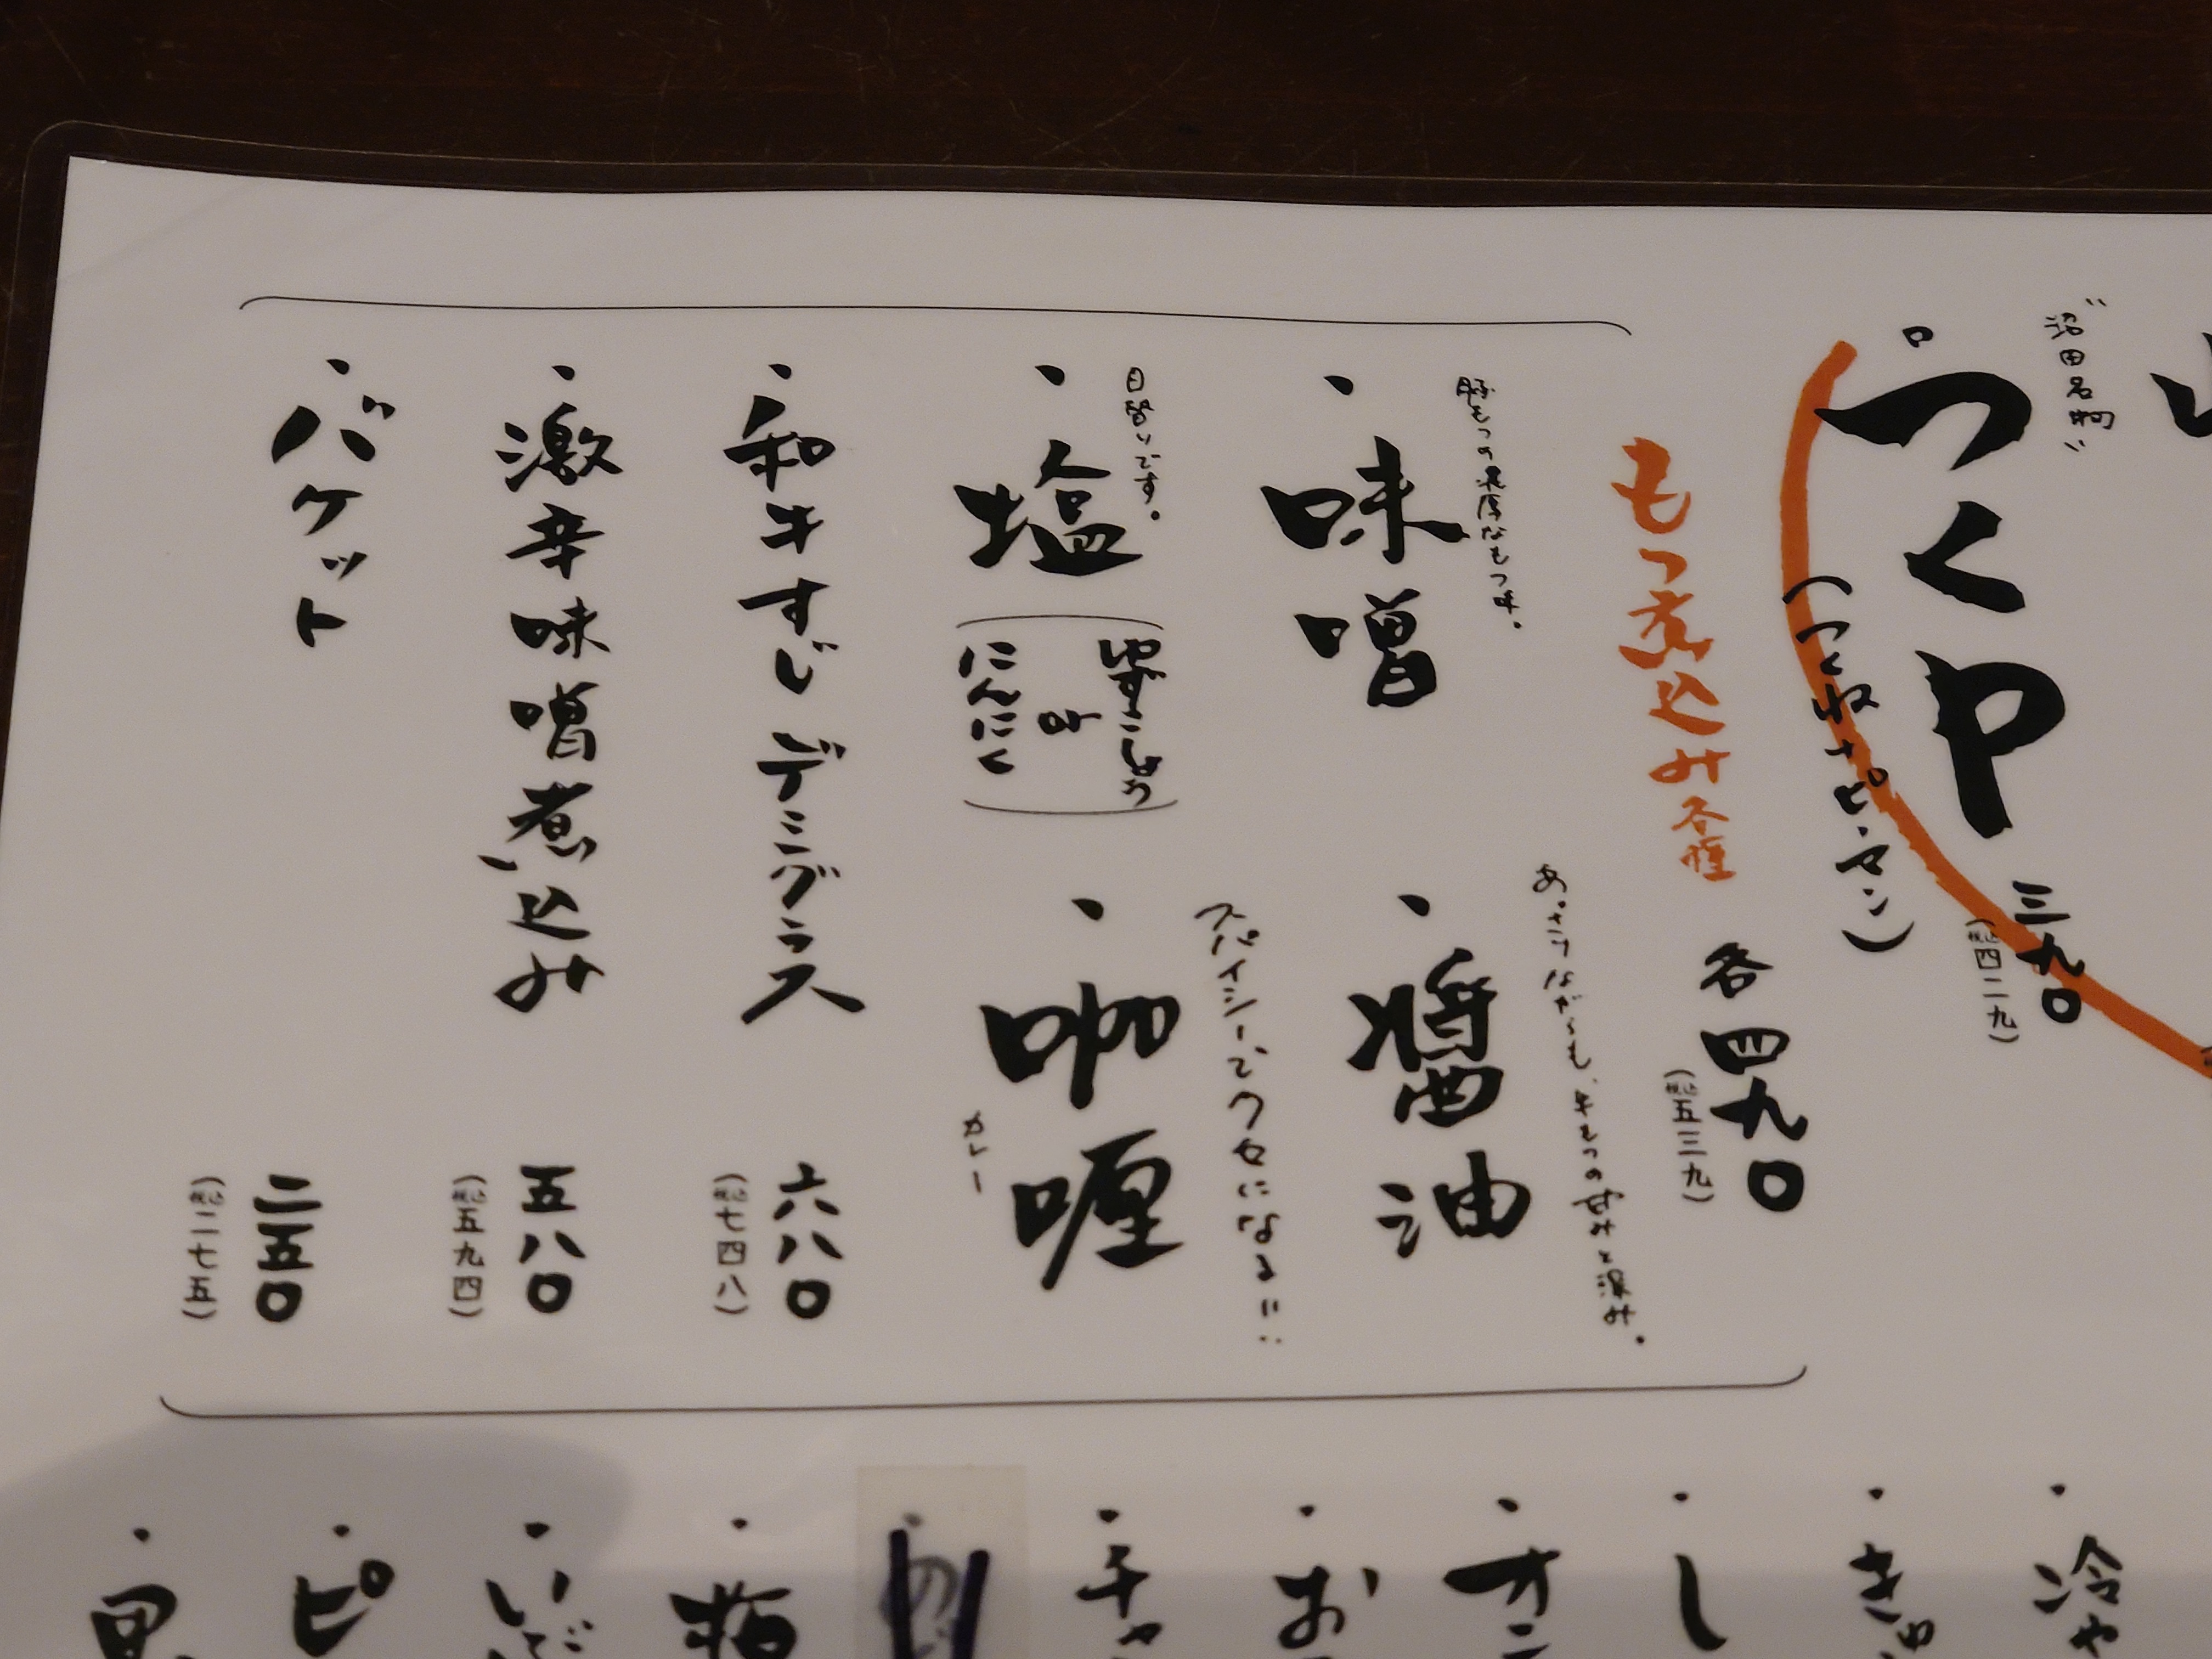 "沼田名物"
つくや
三九〇
(税込四二九)
(つくねナピ・マン)
もつ煮込み各種
各四九〇
(税込五三九)
豚もつの濃厚なもつ味。
・味噌
あっさりながらも、牛もつの甘みと深み。
・醤油
日替りです。
・塩
ゆずこしょう
or
にんにく
スパイシーでクセになる!!
・咖喱
カレー
・和牛すじデミグラス
六八〇
(税込七四八)
・激辛味噌煮込み
五八〇
(税込五九四)
・バケット
二五〇
(税込二七五)
・冷や
・きゅ
・し
・オニ
・お
・チャ
・いぶ
・ピ